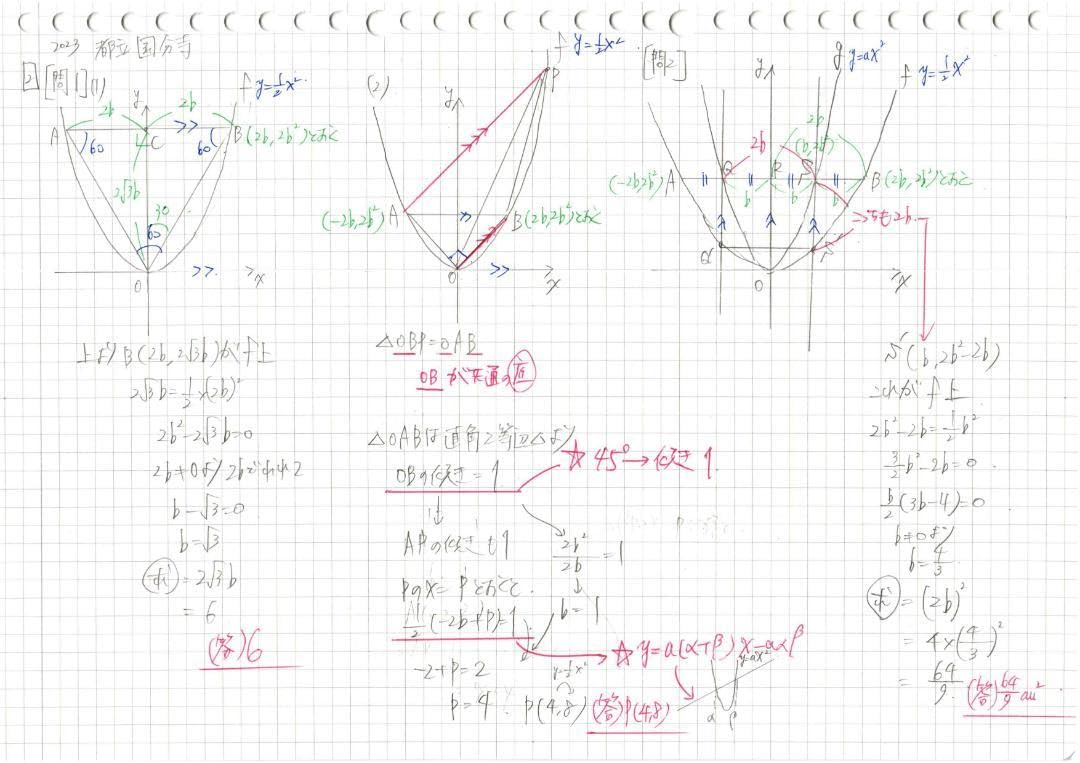 2023 都立国分寺
2 [問1](1)
f y=1/2x²
2b
2b
y
A
>>
C
B(2b,2b²)とおく
60
60
2√3b
30
60
O
>>
x
上よりB(2b,2√3b)がf上
2√3b=1/2×(2b)²
2b²-2√3b=0
2b≠0より2bでわって
b-√3=0
b=√3
求=2√3b
=6
(答)6
(2)
f y=1/2x²
P
y
(-2b,2b²)A
>>
B(2b,2b²)とおく
O
>>
x
△OBP=OAB
OBが共通の底
△OABは直角2等辺△より
OBの傾き=1
☆45°→傾き1
↓
APの傾きも1
2b²/2b=1
PのX=Pとおくと
↓
b=1
1/2(-2b+P)=1
☆y=a(α+β)x-aαβ
-2+P=2
y=1/2x²
y=ax²
P=4
P(4,8)
(答)P(4,8)
α
β
[問2]
g y=ax²
f y=1/2x²
y
2b
2b
(b,2b²)
(-2b,2b²)A
Q
R
S
B(2b,2b²)とおく
b
b
b
こっちも2b
O
x
S'(b,2b²-2b)
これがf上
2b²-2b=1/2b²
3/2b²-2b=0
b/2(3b-4)=0
b≠0より
b=4/3
求=(2b)²
=4×(4/3)²
=64/9
(答)64/9au²